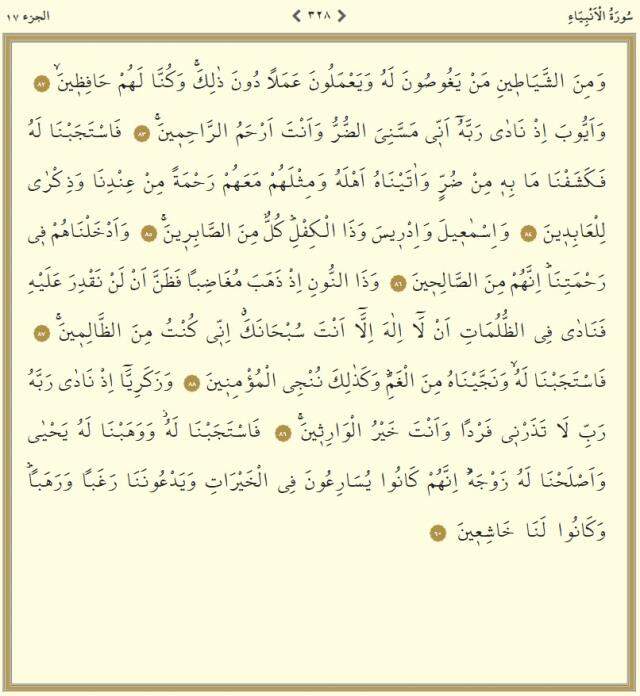 سُورَةُ الْاَنْبِيَاءِ
٣٢٨
الجزء ١٧
وَمِنَ الشَّيَاطِينِ مَنْ يَغُوصُونَ لَهُ وَيَعْمَلُونَ عَمَلًا دُونَ ذٰلِكَۚ وَكُنَّا لَهُمْ حَافِظِينَۙ ٨٢
وَاَيُّوبَ اِذْ نَادٰى رَبَّهُٓ اَنّٖى مَسَّنِىَ الضُّرُّ وَاَنْتَ اَرْحَمُ الرَّاحِمٖينَۚ ٨٣ فَاسْتَجَبْنَا لَهُ
فَكَشَفْنَا مَا بِهٖ مِنْ ضُرٍّ وَاٰتَيْنَاهُ اَهْلَهُ وَمِثْلَهُمْ مَعَهُمْ رَحْمَةً مِنْ عِنْدِنَا وَذِكْرٰى
لِلْعَابِدٖينَ ٨٤ وَاِسْمٰعٖيلَ وَاِدْرٖيسَ وَذَا الْكِفْلِۜ كُلٌّ مِنَ الصَّابِرٖينَۚ ٨٥ وَاَدْخَلْنَاهُمْ فٖى
رَحْمَتِنَاۜ اِنَّهُمْ مِنَ الصَّالِحٖينَ ٨٦ وَذَا النُّونِ اِذْ ذَهَبَ مُغَاضِبًا فَظَنَّ اَنْ لَنْ نَقْدِرَ عَلَيْهِ
فَنَادٰى فِى الظُّلُمَاتِ اَنْ لَٓا اِلٰهَ اِلَّٓا اَنْتَ سُبْحَانَكَۗ اِنّٖى كُنْتُ مِنَ الظَّالِمٖينَۚ ٨٧
فَاسْتَجَبْنَا لَهُۙ وَنَجَّيْنَاهُ مِنَ الْغَمِّۜ وَكَذٰلِكَ نُنْجِى الْمُؤْمِنٖينَ ٨٨ وَزَكَرِيَّٓا اِذْ نَادٰى رَبَّهُ
رَبِّ لَا تَذَرْنٖى فَرْدًا وَاَنْتَ خَيْرُ الْوَارِثٖينَۚ ٨٩ فَاسْتَجَبْنَا لَهُۘ وَوَهَبْنَا لَهُ يَحْيٰى
وَاَصْلَحْنَا لَهُ زَوْجَهُۜ اِنَّهُمْ كَانُوا يُسَارِعُونَ فِى الْخَيْرَاتِ وَيَدْعُونَنَا رَغَبًا وَرَهَبًاۜ
وَكَانُوا لَنَا خَاشِعٖينَ ٩٠